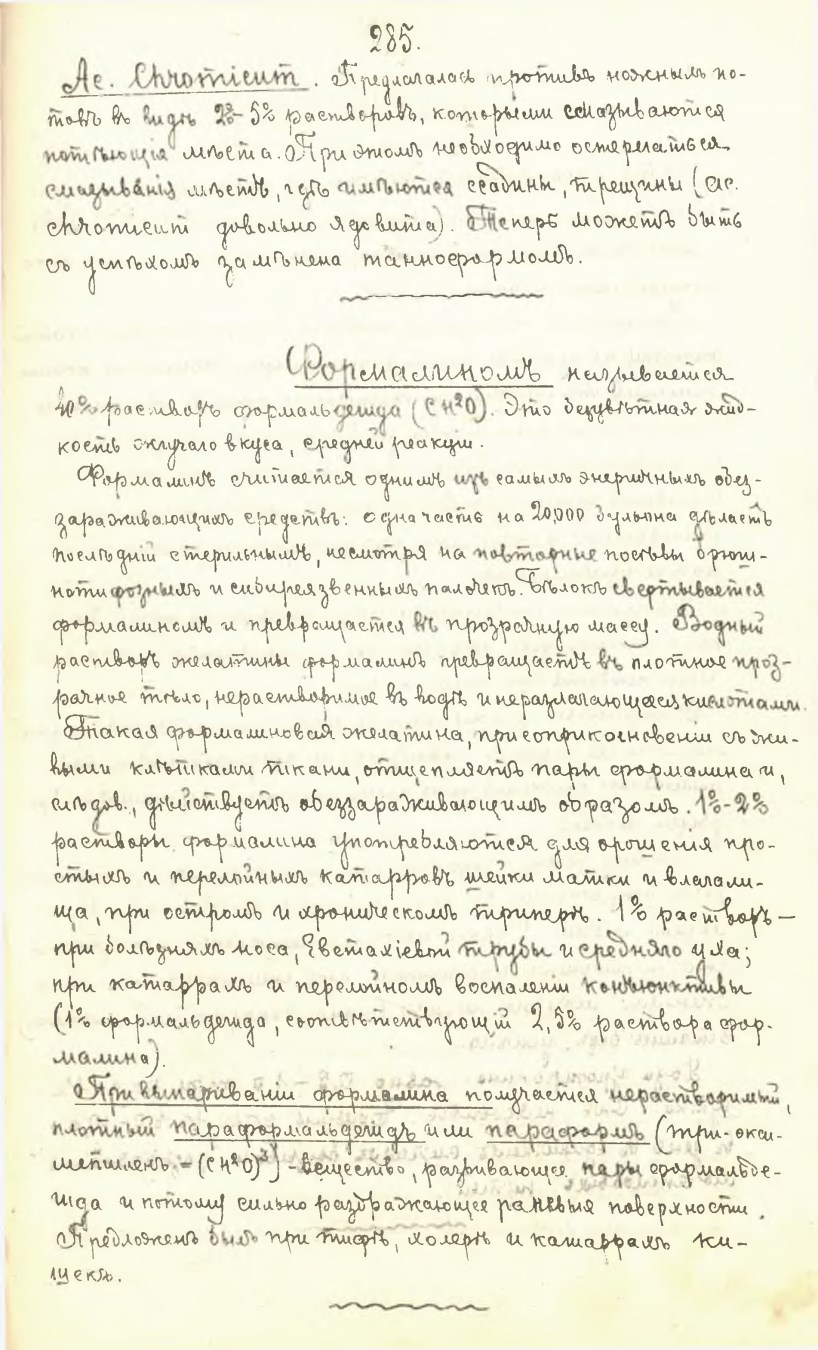 285.
Ac. Chromicum. Предлагалась противъ ножныхъ по-
товъ въ видѣ 2%-5% растворовъ, которыми смазываются
потѣющія мѣста. При этомъ необходимо остерегаться
смазыванія мѣстъ, гдѣ имѣются ссадины, трещины (ac.
chromicum довольно ядовита). Теперь можетъ быть
съ успѣхомъ замѣнена танноформомъ.
Формалиномъ называется
40% растворъ формальдегида (CH²O). Это безцвѣтная жид-
кость жгучаго вкуса, средней реакціи.
Формалинъ считается однимъ изъ самыхъ энергичныхъ обез-
зараживающихъ средствъ: одна часть на 20,000 бульона дѣлаетъ
послѣдній стерильнымъ, несмотря на повторные посѣвы брюш-
нотифозныхъ и сибиреязвенныхъ палочекъ. Бѣлокъ свертывается
формалиномъ и превращается въ прозрачную массу. Водный
растворъ желатины формалинъ превращаетъ въ плотное проз-
рачное тѣло, нерастворимое въ водѣ и неразлагающееся кислотами.
Такая формалиновая желатина, при соприкосновеніи съ жи-
выми клѣтками ткани, отщепляетъ пары формалина и,
слѣдов., дѣйствуетъ обеззараживающимъ образомъ. 1%-2%
растворы формалина употребляются для орошенія про-
стыхъ и перелойныхъ катарровъ шейки матки и влагали-
ща, при остромъ и хроническомъ триперѣ. 1% растворъ —
при болѣзняхъ носа, Евстахіевой трубы и средняго уха;
при катаррахъ и перелойномъ воспаленіи конъюнктивы
(1% формальдегида, соотвѣтствующій 2,5% раствора фор-
малина).
При выпариваніи формалина получается нерастворимый,
плотный параформальдегидъ или параформъ (три-окси-
метиленъ - (CH²O)³) - вещество, развивающее пары формальде-
гида и потому сильно раздражающее раневыя поверхности.
Предложенъ былъ при тифѣ, холерѣ и катаррахъ ки-
шекъ.